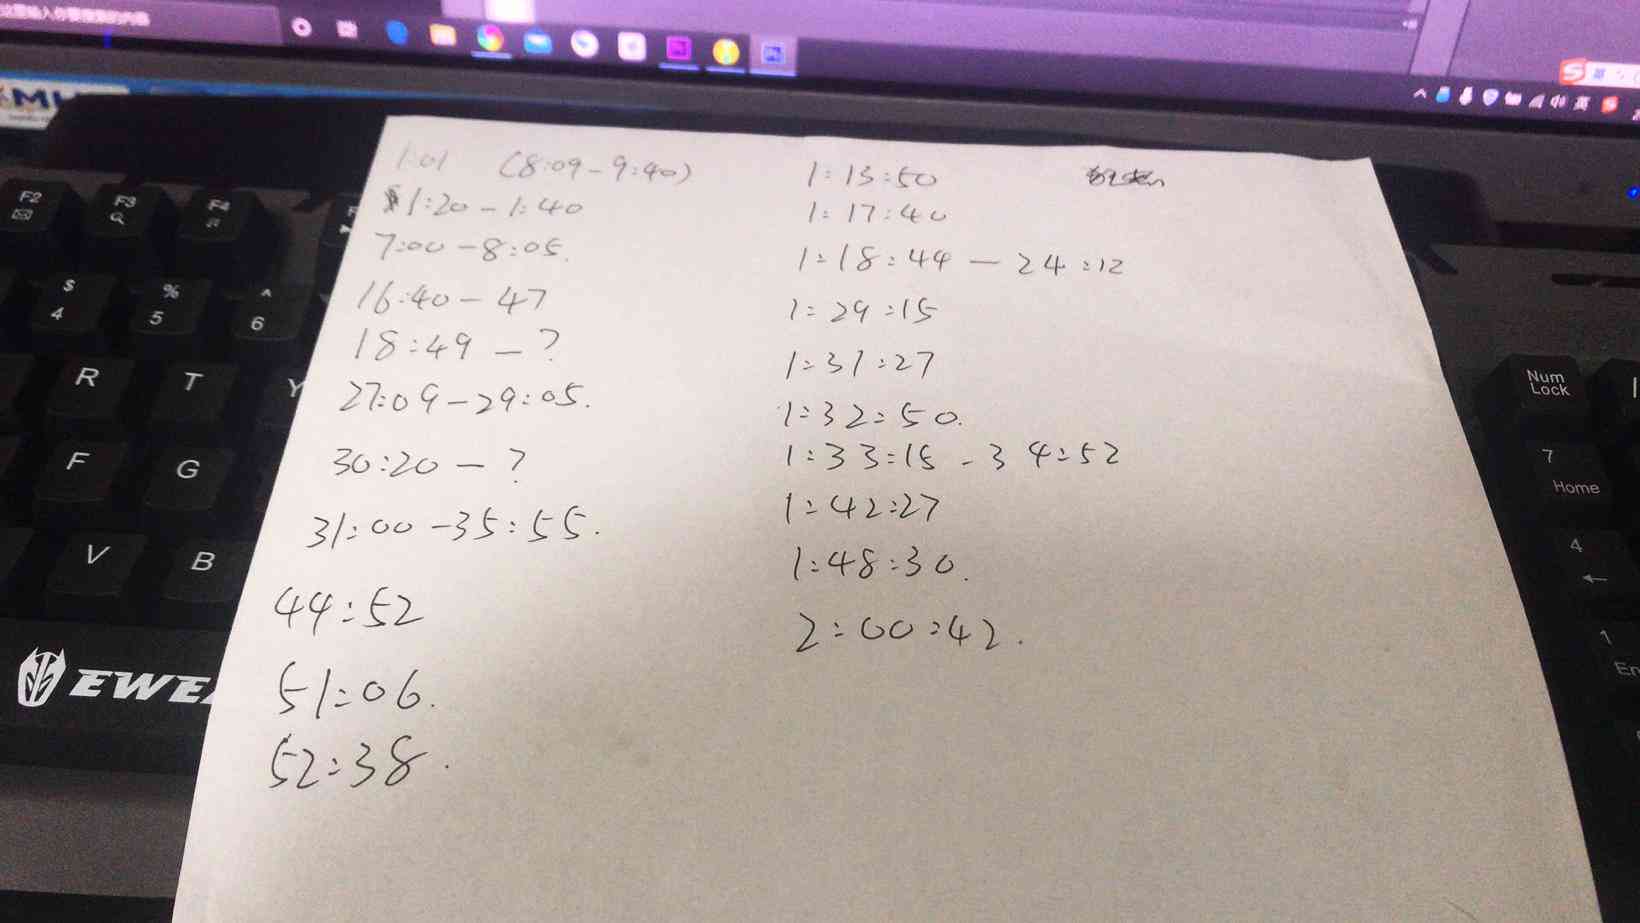 这里输入你要搜索的内容
英
F2
F3
F4
$
4
%
5
^
6
R
T
Y
F
G
V
B
EWE
1:01 (8:09-9:40)
1:20-1:40
7:00-8:05.
16:40-47
18:49-?
27:09-29:05.
30:20-?
31:00-35:55.
44:52
51:06.
52:38.
1:13:50
1:17:40
1:18:44-24:12
1:29:15
1:31:27
1:32:50.
1:33:15-34:52
1:42:27
1:48:30.
2:00:42.
Num
Lock
7
Home
4
1